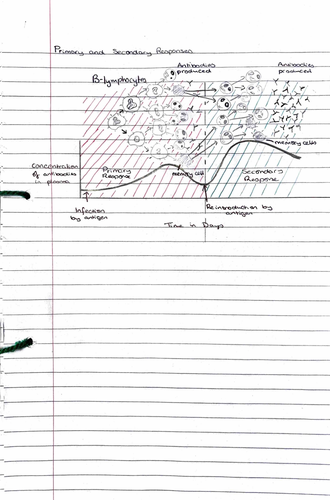 Primary and Secondary Responses
B-lymphocytes
Antibodies
produced
Antibodies
produced
memory cells
Concentration
of antibodies
in plasma
Primary
Response
memory cell
Secondary
Response
Infection
by antigen
Reintroduction by
antigen
Time in Days